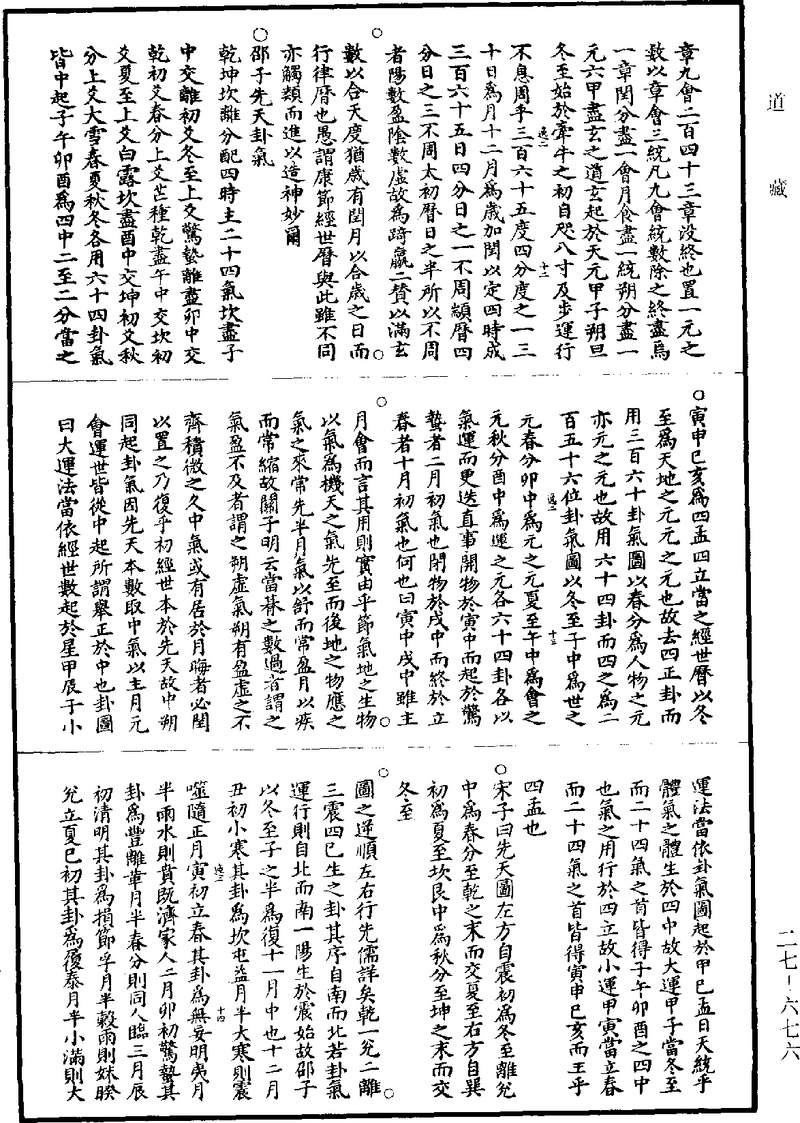 道藏
章九會二百四十三章没終也置一元之
數以章會三統凡九會統數除之終盡焉
一章閏分盡一會月食盡一統朔分盡一
元六甲盡玄之道玄起於天元甲子朔旦
冬至始於牽牛之初自咫八寸及步運行
不息周乎三百六十五度四分度之一三
十日為月十二月為歲加閏以定四時成
三百六十五日四分日之一不周顓曆四
分日之三不周太初曆日之半所以不周
者陽數盈陰數虛故為踦嬴二贊以滿玄
數以合天度猶歲有閏月以合歲之日而
行律曆也愚謂康節經世曆與此雖不同
亦觸類而進以造神妙爾
邵子先天卦氣
乾坤坎離分配四時主二十四氣坎盡子
中交離初爻冬至上爻驚蟄離盡卯中交
乾初爻春分上爻芒種乾盡午中交坎初
爻夏至上爻白露坎盡酉中交坤初爻秋
分上爻大雪春夏秋冬各用六十四卦氣
皆中起子午卯酉為四中二至二分當之
寅申巳亥為四孟四立當之經世曆以冬
至為天地之元元之元也故去四正卦而
用三百六十卦氣圖以春分為人物之元
亦元之元也故用六十四卦而四之為二
百五十六位卦氣圖以冬至子中為世之
元春分卯中為元之元夏至午中為會之
元秋分酉中為運之元各六十四卦各以
氣運而更迭直事開物於寅中而起於驚
蟄者二月初氣也閉物於戌中而終於立
春者十月初氣也何也曰寅中戌中雖主
月會而言其用則實由乎節氣地之生物
以氣為機天之氣先至而後地之物應之
氣之來常先半月氣以舒而常盈月以疾
而常縮故關子明云當朞之數過者謂之
氣盈不及者謂之朔虛氣朔有盈虛之不
齊積微之久中氣或有居於月晦者必閏
以置之乃復乎初經世本於先天故中朔
同起卦氣因先天本數取中氣以主月元
會運世皆從中起所謂舉正於中也卦圖
曰大運法當依經世數起於星甲辰子小
運法當依卦氣圖起於甲巳孟日天統乎
體氣之體生於四中故大運甲子當冬至
而二十四氣之首皆得子午卯酉之四中
也氣之用行於四立故小運甲寅當立春
而二十四氣之首皆得寅申巳亥而王乎
四孟也
宋子曰先天圖左方自震初為冬至離兌
中為春分至乾之末而交夏至右方自巽
初為夏至坎艮中為秋分至坤之末而交
冬至
圖之逆順左右行先儒詳矣乾一兌二離
三震四已生之卦其序自南而北若卦氣
運行則自北而南一陽生於震始故邵子
以冬至子之半為復十一月中也十二月
丑初小寒其卦為坎屯益月半大寒則震
噬隨正月寅初立春其卦為無妄明夷月
半雨水則賁既濟家人二月卯初驚蟄其
卦為豐離革月半春分則同人臨三月辰
初清明其卦為損節孚月半穀雨則妹睽
兌立夏巳初其卦為履泰月半小滿則大
二七-六七六